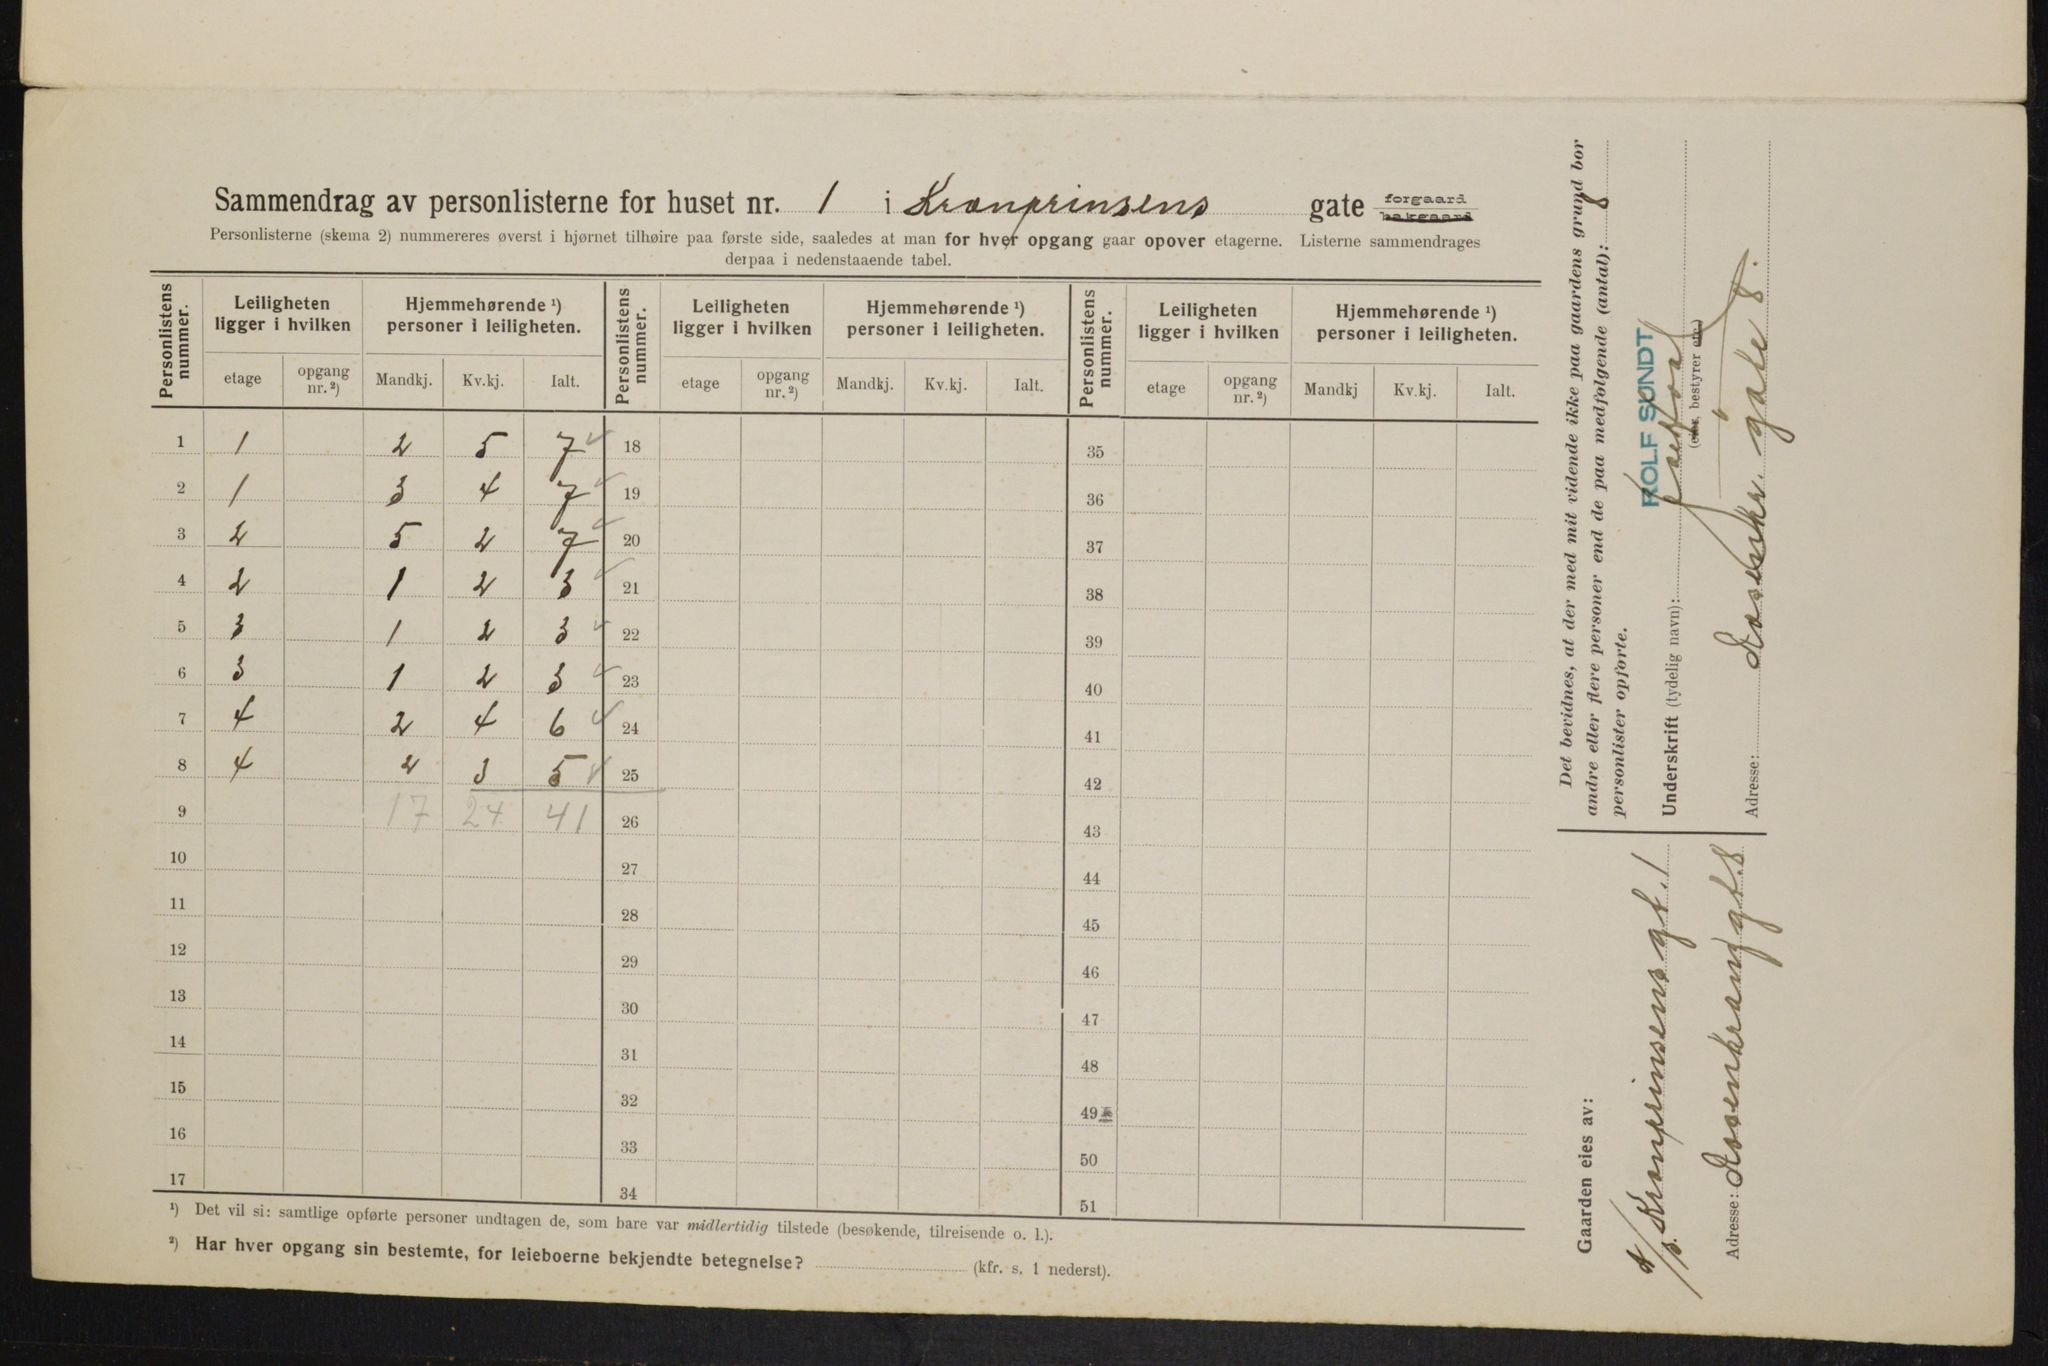 Sammendrag av personlisterne for huset nr. 1 i Kronprinsens gate forgaard bakgaard
Personlisterne (skema 2) nummereres øverst i hjørnet tilhøire paa første side, saaledes at man for hver opgang gaar opover etagerne. Listerne sammendrages
derpaa i nedenstaaende tabel.
Personlistens nummer. Leiligheten ligger i hvilken Hjemmehørende ¹) personer i leiligheten. Personlistens nummer. Leiligheten ligger i hvilken Hjemmehørende ¹) personer i leiligheten. Personlistens nummer. Leiligheten ligger i hvilken Hjemmehørende ¹) personer i leiligheten.
etage opgang nr. ²) Mandkj. Kv.kj. Ialt. etage opgang nr. ²) Mandkj. Kv.kj. Ialt. etage opgang nr. ²) Mandkj Kv.kj. Ialt.
1 1 2 5 7 18 35
2 1 3 4 7 19 36
3 2 5 2 7 20 37
4 2 1 2 3 21 38
5 3 1 2 3 22 39
6 3 1 2 3 23 40
7 4 2 4 6 24 41
8 4 2 3 5 25 42
9 17 24 41 26 43
10 27 44
11 28 45
12 29 46
13 30 47
14 31 48
15 32 49
16 33 50
17 34 51
¹) Det vil si: samtlige opførte personer undtagen de, som bare var midlertidig tilstede (besøkende, tilreisende o. l.).
²) Har hver opgang sin bestemte, for leieboerne bekjendte betegnelse? (kfr. s. 1 nederst).
Det bevidnes, at der med mit vidende ikke paa gaardens grund bor
andre eller flere personer end de paa medfølgende (antal): 8
personlister opførte.
ROLF SUNDT
Underskrift (tydelig navn):
(eier, bestyrer etc.)
Adresse: Rosenkr. gate 8.
Gaarden eies av:
A/S Kronprinsens gt. 1
Adresse: Rosenkransgt 8